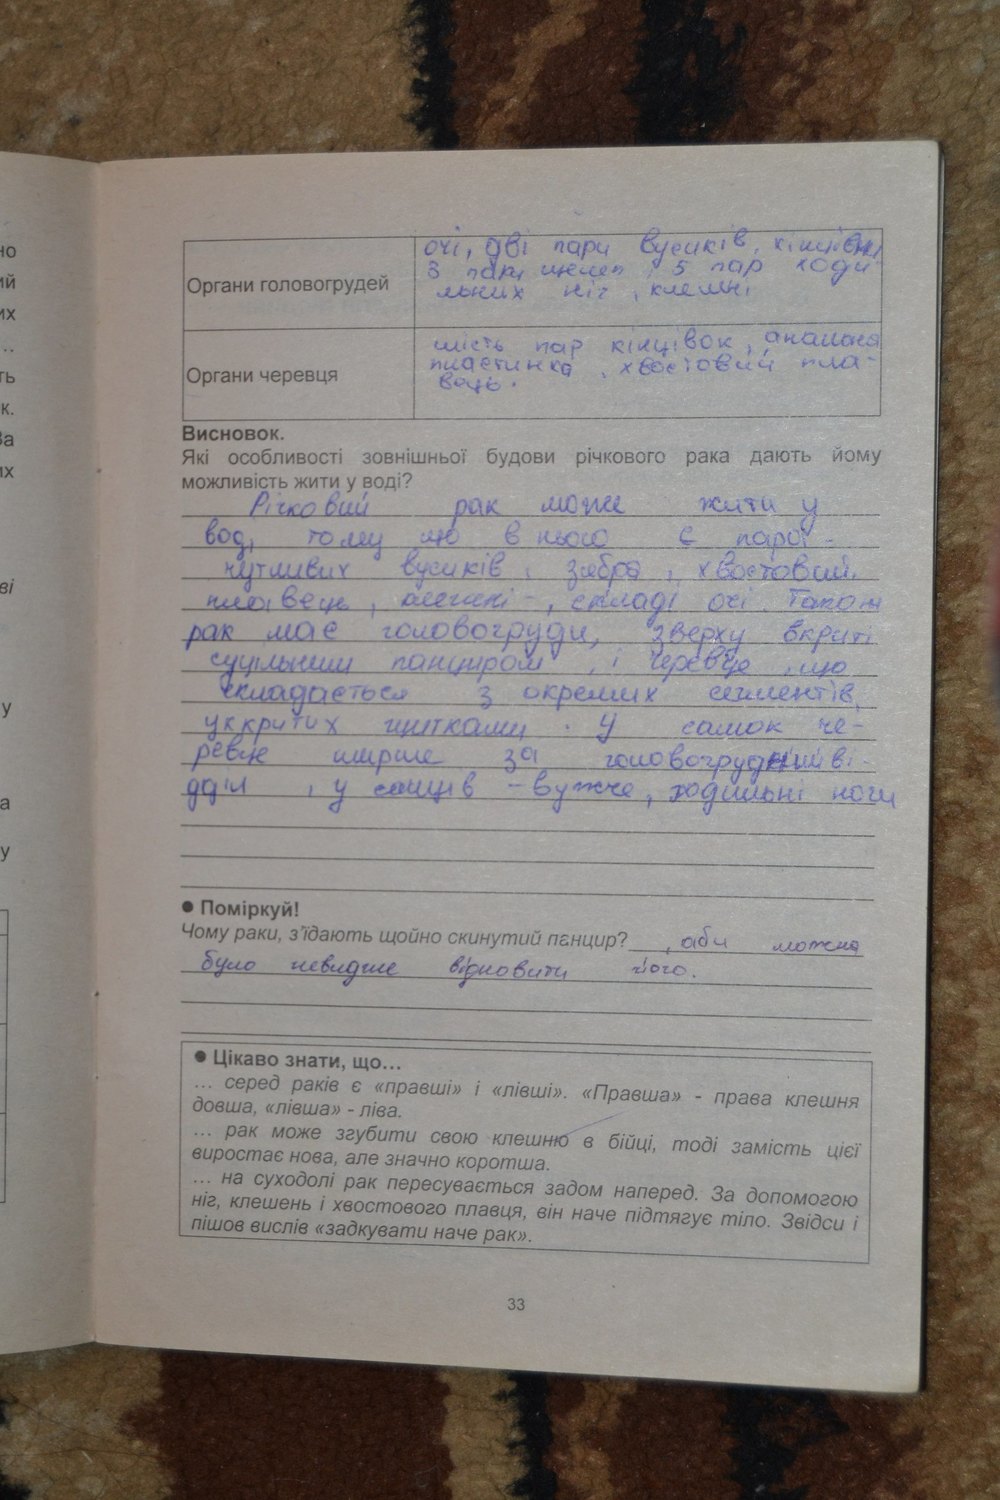 но
ий
их
..
ть
к.
За
их
ві
у
а
у
Органи головогрудей
очі, дві пари вусиків, кінцівки
3 пари щелеп, 5 пар ходи
льних ніг, клешні
Органи черевця
шість пар кінцівок, анальна
пластинка, хвостовий пла-
вець.
Висновок.
Які особливості зовнішньої будови річкового рака дають йому
можливість жити у воді?
Річковий рак може жити у
воді, тому що в нього є пара
чутливих вусиків, зябра, хвостовий
плавець, клешні, складі очі. Також
рак має головогруди, зверху вкриті
суцільним панциром, і черевце, що
складається з окремих сегментів,
уккритих щитками. У самок че-
ревце ширше за головогрудний ві-
дділ, у самців - вужче, ходильні ноги
● Поміркуй!
Чому раки, з'їдають щойно скинутий панцир? , аби можна
було швидше відновити його.
● Цікаво знати, що...
... серед раків є «правші» і «лівші». «Правша» - права клешня
довша, «лівша» - ліва.
... рак може згубити свою клешню в бійці, тоді замість цієї
виростає нова, але значно коротша.
... на суходолі рак пересувається задом наперед. За допомогою
ніг, клешень і хвостового плавця, він наче підтягує тіло. Звідси і
пішов вислів «задкувати наче рак».
33